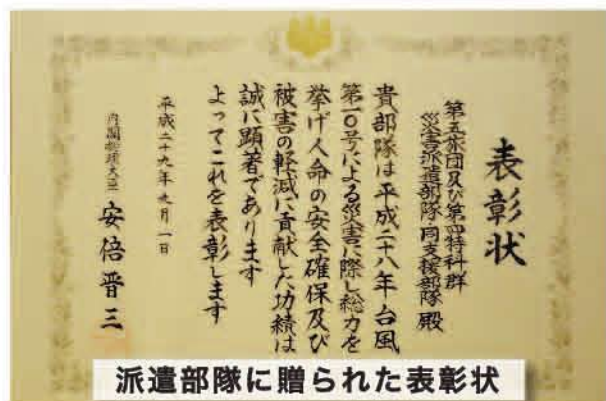 表彰状
第五旅団及び第四特科群
災害派遣部隊同支援部隊 殿
貴部隊は平成二十八年台風
第一〇号による災害に際し総力を
挙げ人命の安全確保及び
被害の軽減に貢献した功績は
誠に顕著であります
よってこれを表彰します
平成二十九年九月一日
内閣総理大臣 安倍晋三
派遣部隊に贈られた表彰状